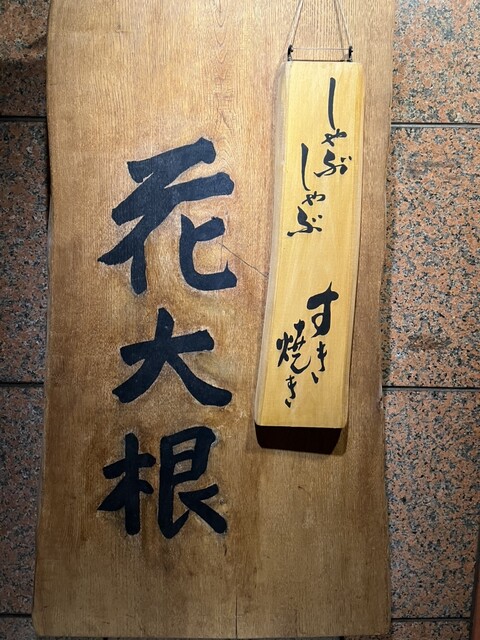 しゃぶ
しゃぶ
すき
焼き
花大根